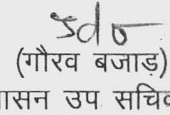 (गौरव बजाड़)
ासन उप सचिव